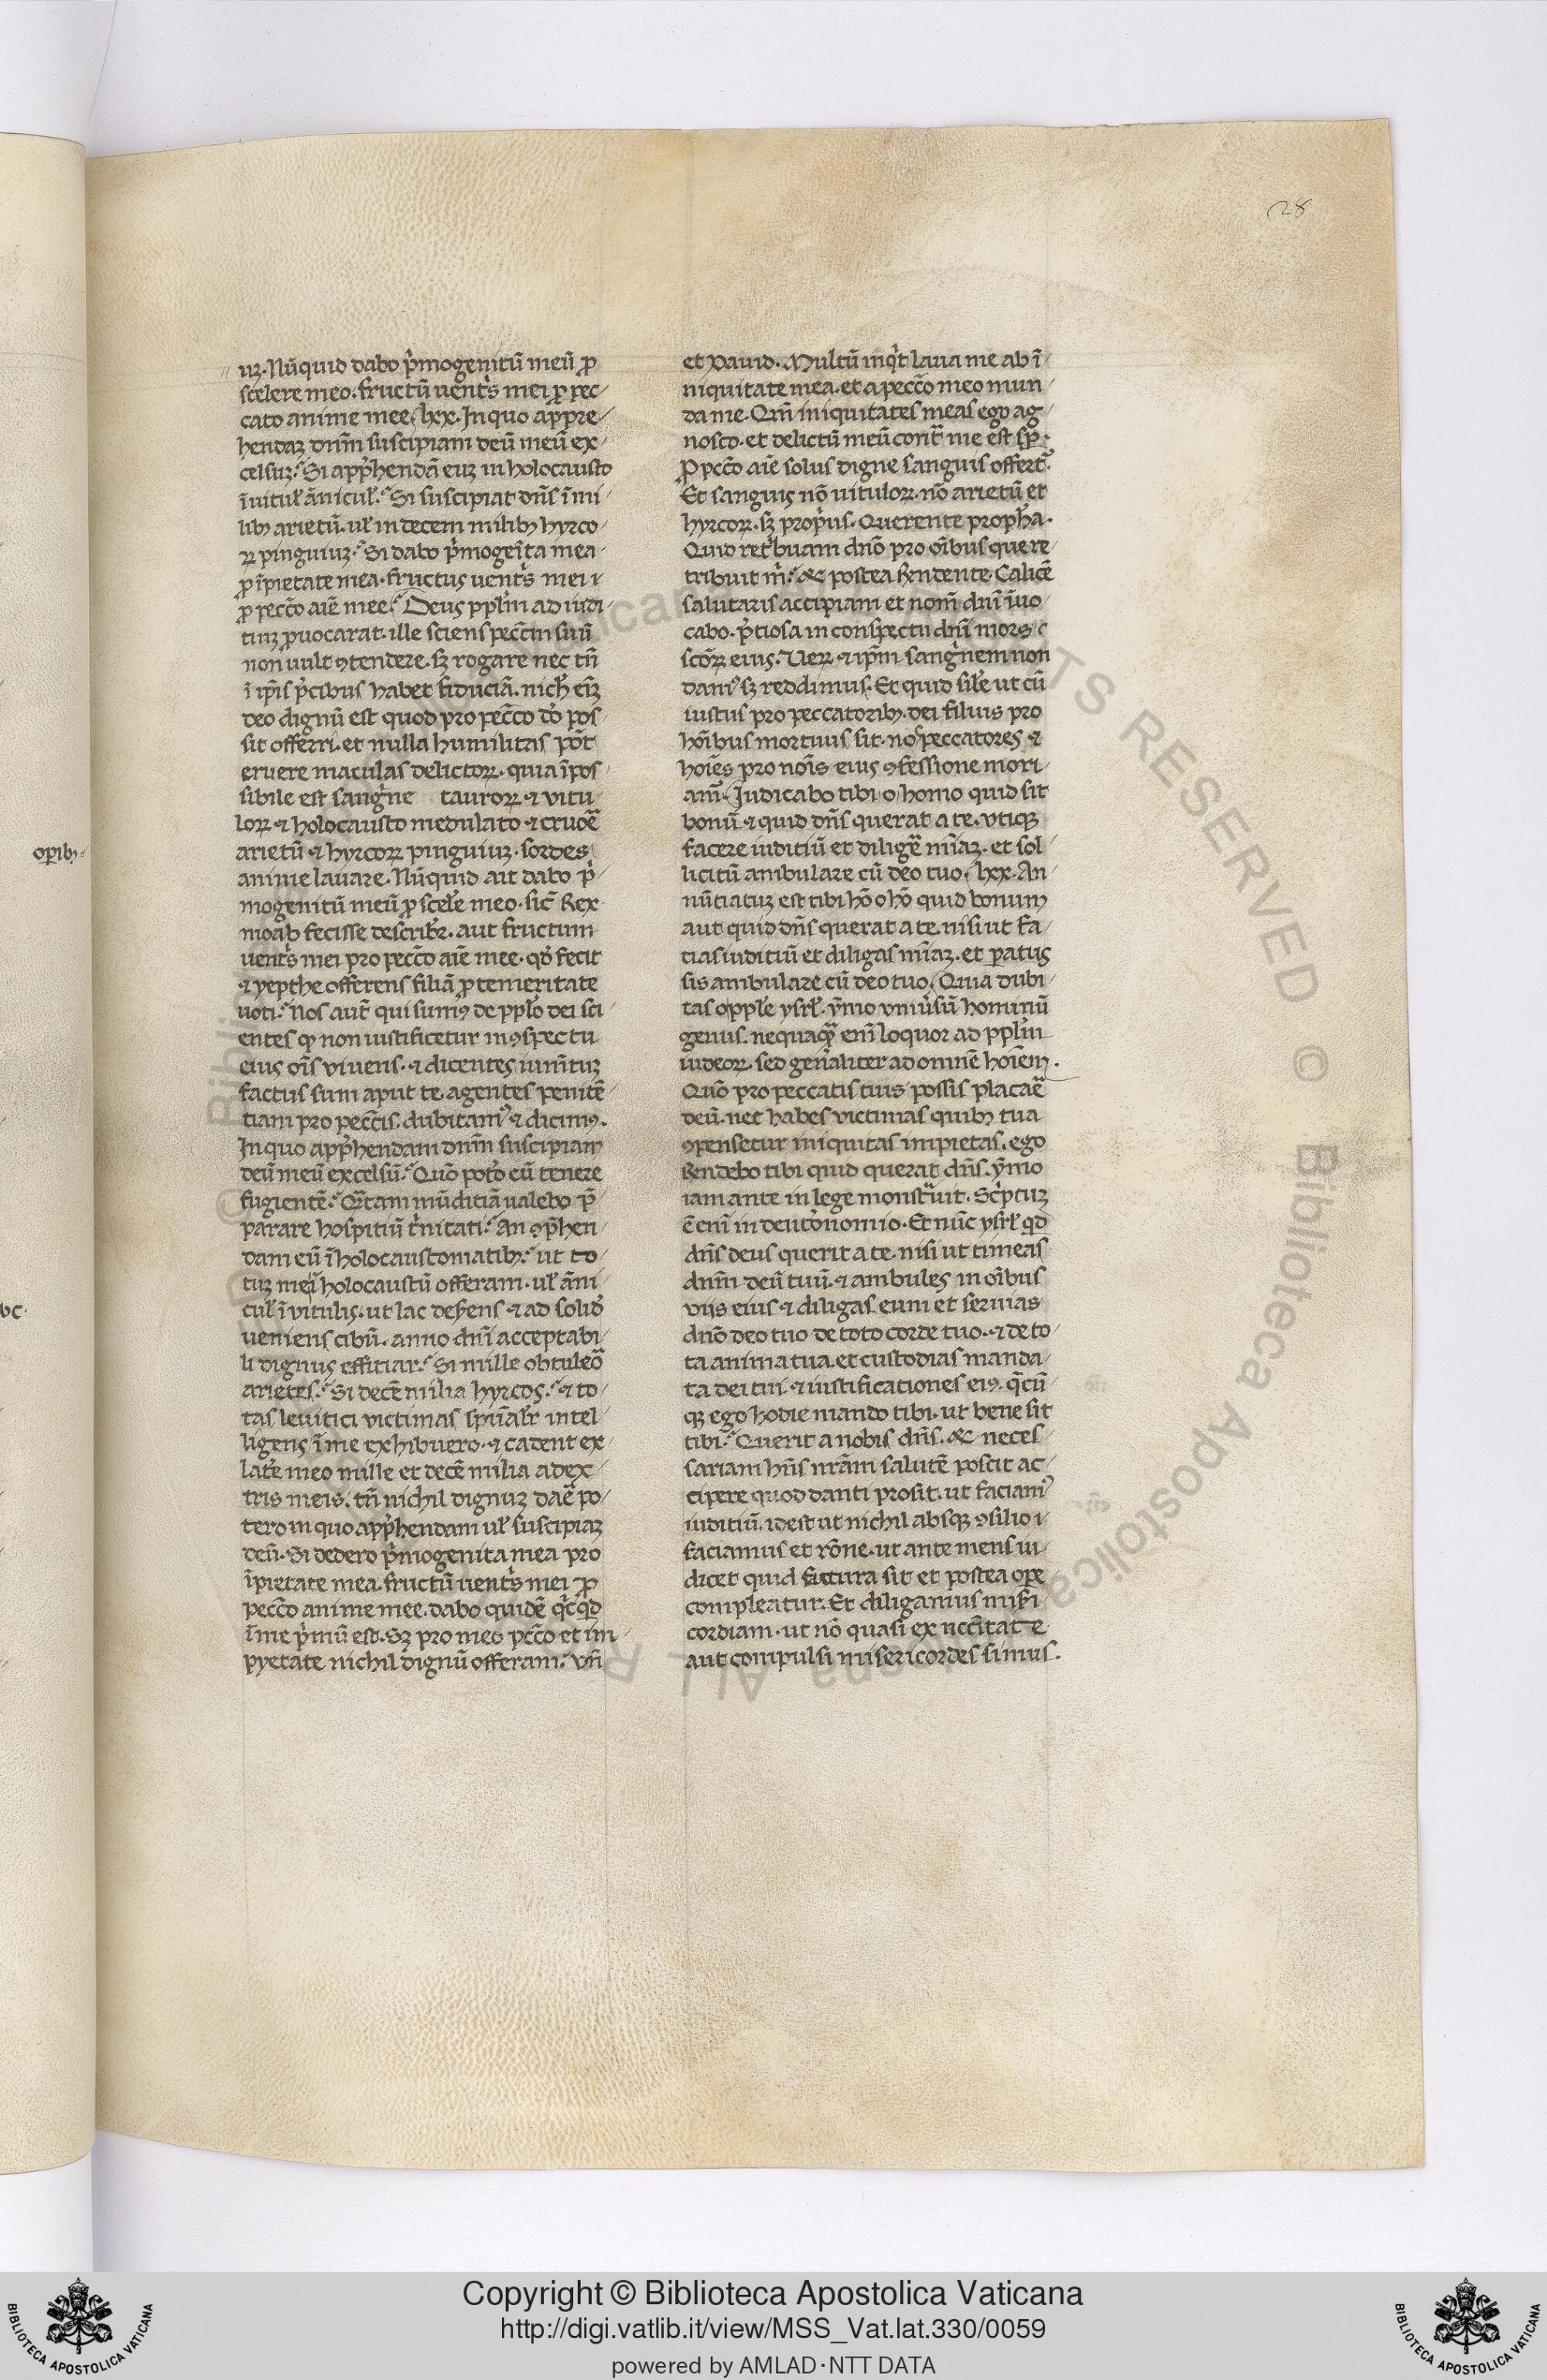 28
uz. Nūquid dabo p̓mogenitū meū ꝓ
scelere meo. fructū uent̓s mei ꝓ pec/
cato anime mee. lxx. In quo appre/
hendaz dnm̄ suscipiam deū meū ex/
celsuz? Si app̓hendā euz in holocausto
ī uitul̓ ānicul̓? Si suscipiat dn̄s ī mi/
libꝫ arietū. ul̓ in decem milibꝫ hyrco/
ꝝ pinguiuz? Si dabo p̓mogeīta mea
ꝓ īpietate mea. fructus uent̓s mei
ꝓ pecc̄o aīe mee? Deus ppl̓m ad iudi/
tiuz ꝓuocarat. ille sciens pecc̄m suū
non uult ꝯtendere. sꝫ rogare nec tn̄
ī ip̄is p̓cibus habet fiduciā. nich̓ eīz
deo dignū est quod pro pecc̄o do̓ pos/
sit offerri. et nulla humilitas pōt
eruere maculas delictoꝝ. quia īpos/
sibile est sang̓ne tauroꝝ ⁊ vitu/
loꝝ ⁊ holocausto medulato ⁊ cruoē
arietū ⁊ hyrcoꝝ pinguiuz. sordes
anime lauare. Nūquid ait dabo p̓/
mogenitū meū ꝓ scel̓e meo. sic̄ Rex
moab fecisse describ̓r. aut fructum
uent̓s mei pro pecc̄o aīe mee. qd̓ fecit
⁊ yepthe offerens filiā ꝓ temeritate
uoti? Nos aut̄ qui sumꝰ de pplo̓ dei sci/
entes ꝙ non iustificetur in ꝯspectu
eius oīs viuens. ⁊ dicentes ium̄tuz
factus sum aput te. agentes penitē/
tiam pro pecc̄is. dubitamꝰ ⁊ dicimꝰ.
In quo app̓hendam dnm̄ suscipiam
deū meū excelsū? Quō poto̓ eū tenere
fugientē? Q̄tam mūditiā ualebo p̄/
parare hospitiū t̓nitati? An ꝯp̓hen/
dam eū ī holocaustomatibꝫ? ut to/
tuz mei̓ holocaustū offeram. ul̓ āni/
cul̓ ī vitulis. ut lac des̓ens ⁊ ad solid̓
ueniens cibū. anno dn̄i acceptabi/
li dignus effitiar? Si mille obtuleō
arietes? Si decē milia hyrcos? ⁊ to/
tas leuitici victimas sp̄ualr̓ intel/
ligens ī me exhibuero. ⁊ cadent ex
lat̓e meo mille et decē milia adex/
tris meis. tn̄ nichil dignuz daē po/
tero in quo app̓hendam ul̓ suscipiaz
deū. Si dedero p̓mogenita mea pro
īpietate mea. fructū uent̓s mei ꝓ
pecc̄o anime mee. dabo quidē q̓cq̓d
ī me p̓mū est. Sꝫ pro meo pcc̄o et im/
pyetate nichil dignū offeram. vn̄
et Dauid. Multū inq̓t laua me ab ī/
niquitate mea. et a pecc̄o meo mun/
da me. Qm̄ iniquitates meas ego ag/
nosco. et delictū meū cont̄ me est sp̄.
Ꝓ pcc̄o aīe solus digne sanguis offert̓.
Et sanguis nō vituloꝝ. nō arietū et
hyrcoꝝ. sꝫ prop̓us. Querente proph̄a.
Quid ret̓buam dnō pro oībus que re/
tribuit m̓? ⁊c̄ postea Rn̄dente. Calicē
salutaris accipiam et nom̄ dn̄i īuo/
cabo. p̓tiosa in conspectu dn̄i mors
sc̄oꝝ eius. Ueꝝ ⁊ ip̄m sang̓nem non
damꝰ sꝫ reddimus. Et quid sil̓e ut cū
iustus pro peccatoribꝫ. dei filius pro
hoībus mortuus sit. nos peccatores ⁊
hoīes pro noīs eius ꝯfessione mori/
am̓. Judicabo tibi o homo quid sit
bonū ⁊ quid dn̄s querat a te. vtiqꝫ
facere iuditiū et diligē mīaz. et sol/
licitū ambulare cū deo tuo. lxx. An/
nūtiatuz est tibi hō o hō quid bonum
aut quid dn̄s querat a te. nisi ut fa/
tias iuditiū et diligas mīaz. et ꝑatus
sis ambulare cū deo tuo. Quia dubi/
tas o pple̓ ysrl̓. ymo vniu̓sū hominū
genus. nequaq̄ enī loquor ad ppl̓m
iudeoꝝ. sed gen̓aliter ad omnē hoīem.
Quō pro peccatis tuis possis placaē
deū. nec habes victimas quibꝫ tua
ꝯpensetur iniquitas impietas. ego
Rn̄debo tibi quid querat dn̄s. ymo
iam ante in lege monst̄uit. Sc̓ptuz
ē enī in deuto̓nomio. Et nūc ysrl̓ qd̓
dn̄s deus querit a te. nisi ut timeas
dnm̄ deū tuū. ⁊ ambules in oībus
viis eius ⁊ diligas eum et seruias
dnō deo tuo de toto corde tuo. ⁊ de to/
ta anima tua. et custodias manda/
ta dei tui ⁊ iustificationes eiꝰ. q̄cū/
qꝫ ego hodie mando tibi. ut bene sit
tibi? Querit a nobis dn̄s. ⁊c̄ neces/
sariam hn̄s nrām salutē poscit ac/
cipere quod danti prosit. ut faciamꝰ
iuditiū. idest ut nichil absqꝫ ꝯsilio
faciamus et rōne. ut ante mens iu/
dicet quid factura sit et postea oꝑe
compleatur. Et diligamus mis̓i/
cordiam. ut nō quasi ex nccītate
aut compulsi misericordes simus.
oꝑibꝫ
Copyright © Biblioteca Apostolica Vaticana
http://digi.vatlib.it/view/MSS_Vat.lat.330/0059
powered by AMLAD·NTT DATA
BIBLIOTECA APOSTOLICA VATICANA
BIBLIOTECA APOSTOLICA VATICANA